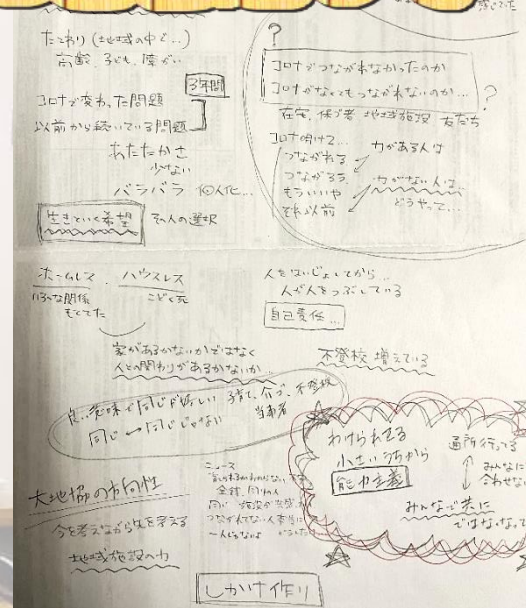 たとわり(地域の中で...)
高齢、子ども、障がい
3年間
コロナで変わった問題
以前から続いている問題
あたたかさ
少ない
バラバラ 個人化...
生きていく希望 その人の選択
?
コロナでつながれなかったのか
コロナがなくてもつながれないのか...
?
在宅、保ゴ者 地域施設 友だち
コロナ明けて...
つながれる 力がある人は
つながろう
もういいや 力がない人は...
それ以前 どうやって...
ホームレス・ハウスレス
いろんな関係 こどく死
もてた
人をはいじょしてから...
人が人をつぶしている
自己責任...
家があるかないかではなく
人との関わりがあるかないか...
不登校 増えている
良い意味で同じが嬉しい 子育て、介ゴ、不登校
当事者
同じ 同じじゃない
わけられてる
小さいうちから
能力主義
通所行ってる
みんなに
合わせない
みんなで共に
ではなくなって
大地協の方向性
ニュース
今を考えながら先を考える
地域施設の力
しかけ作り